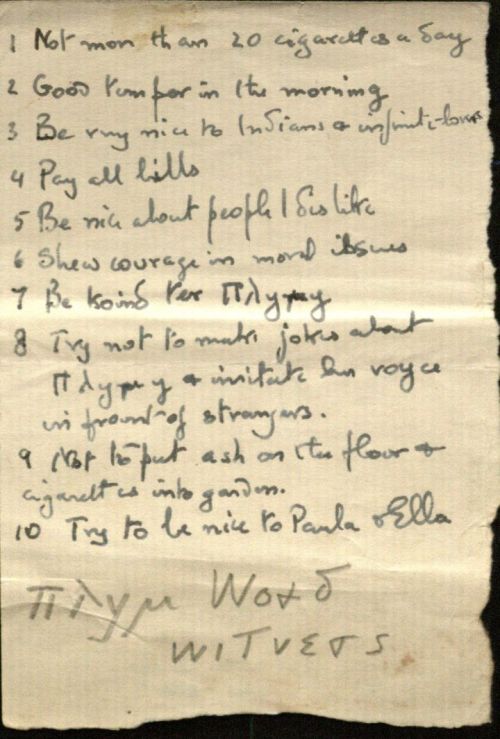 1 Not mor than 20 cigarettes a day
2 Good temper in the morning
3 Be very nice to Indians & infinite-bores
4 Pay all bills
5 Be nice about people I dislike
6 Shew courage in moral issues
7 Be koind ter Πλυμυ
8 Try not to make jokes about
Πλυμυ & imitate her voyce
in front of strangers.
9 Not to put ash on the floor &
cigarettes into garden.
10 Try to be nice to Paula & Ella
Πλυμ
WITNESS